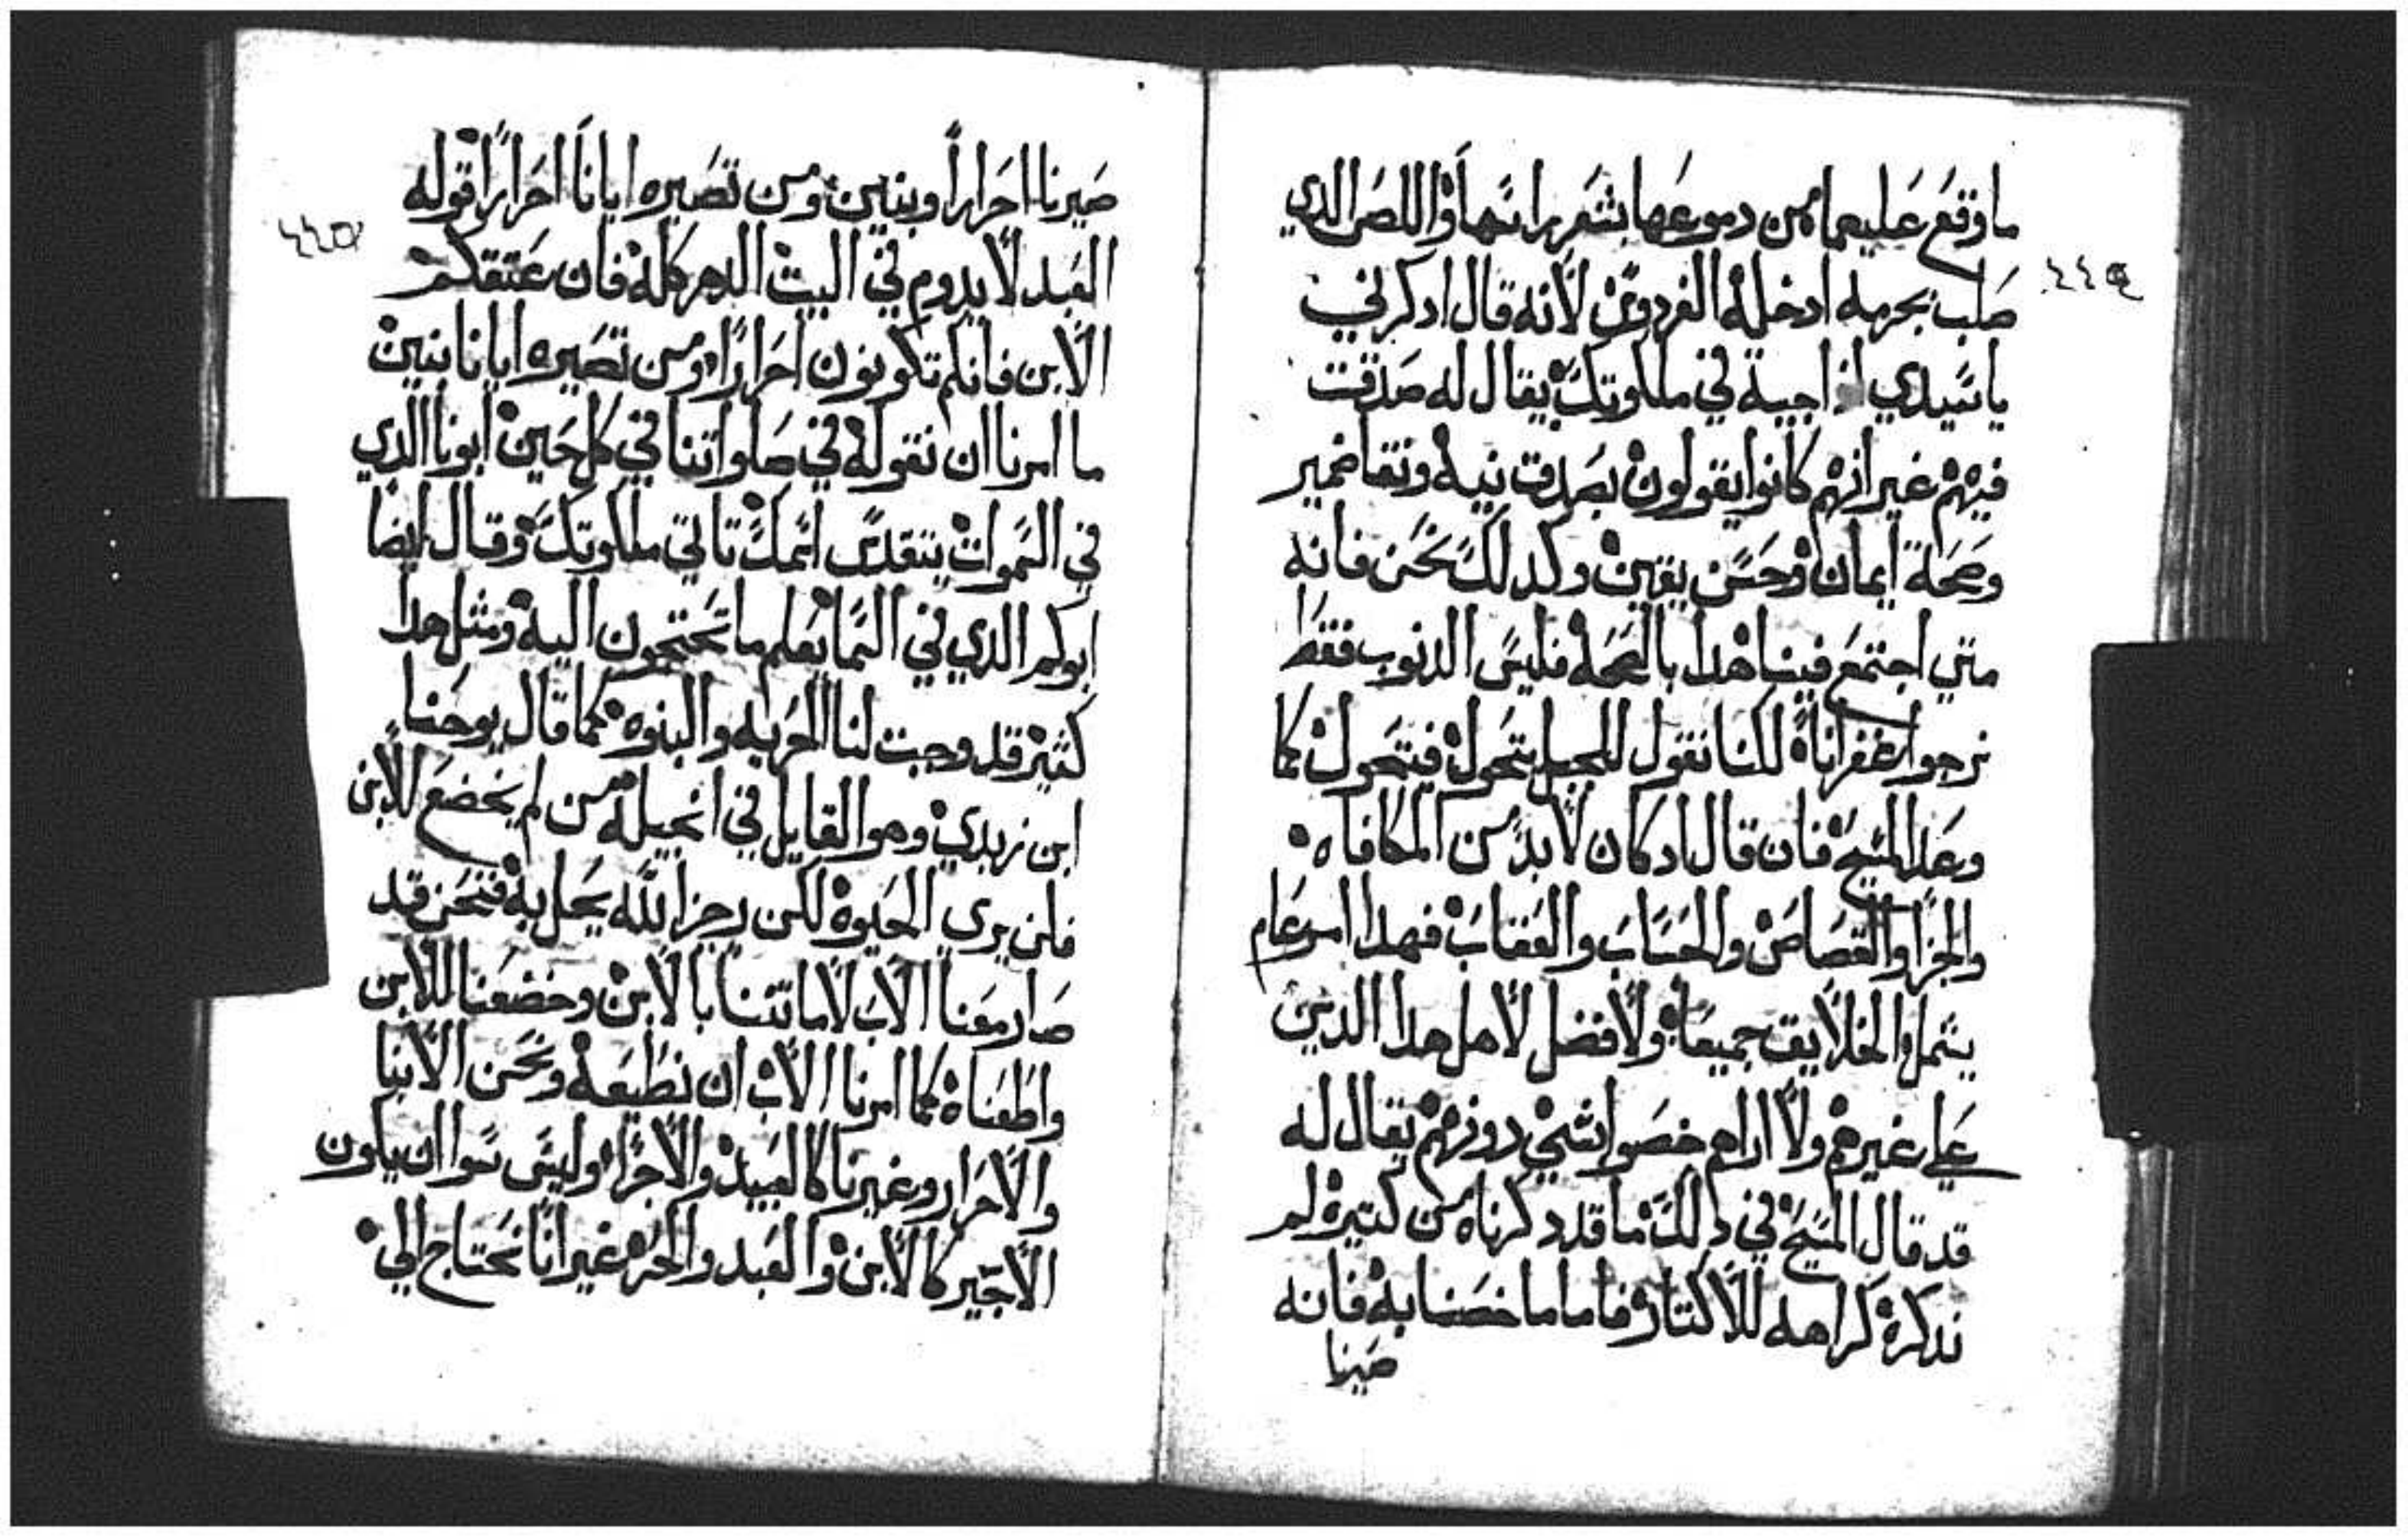 ما وقع عليهما من دموعها بشعر راسها واللص الدي
٤٤٤
صلب بجرمه ادخله الفردوس لانه قال ادكرني
ياسيدي اذا جيت في ملكوتك يقال له صدقت
فيهم غير انهم كانوا يقولون بصدق نيه ونقا ضمير
وصحة ايمان وحسن يقين وكدلك نحن فانه
متي اجتمع فينا هدا بالصحه فليس الدنوب فقط
نرجوا غفرانا لكنا نقول للجبل يتحول فيتحول كما
وعد المسيح فان قال اد كان لابد من المكافاه
والجزا والقصاص والحساب والعقاب فهدا امر عام
يشمل الخلايق جميعا ولا فضل لاهل هدا الدين
علي غيرهم ولا اراهم خصوا بشي دونهم يقال له
قد قال المسيح في دلك ما قد دكرناه من كتيره لم
ندكره كراهه للاكتار فاما ما خصنا به فانه
صيرنا
صيرنا احرارا وبنين ومن تصيره ايانا احرارا قوله
٤٤٥
العبد لا يدوم في البيت الدهر كله فان عتقكم
الابن فانكم تكونون احرارا ومن تصيره ايانا بنين
ما امرنا ان نقوله في صلواتنا في كل حين ابونا الدي
في السموات يتقدس اسمك تاتي ملكوتك وقال ايضا
ابوكم الدي في السما يعلم ما تحتجون اليه ومثل هدا
كتير قد وجبت لنا الحريه والبنوه كما قال يوحنا
ابن زبدي وهو القايل في انجيله من لم يخضع للابن
فلن يري الحيوه لكن رجز الله يحل به فنحن قد
صار معنا الاب لامانتنا بالابن وخضعنا للابن
واطعناه كما امرنا الاب ان نطيعه ونحن الابنا
والاحرار وغيرنا كالعبيد والاجرا وليس سوا ان يكون
الاجير كالابن والعبد والحر غير انا نحتاج الي